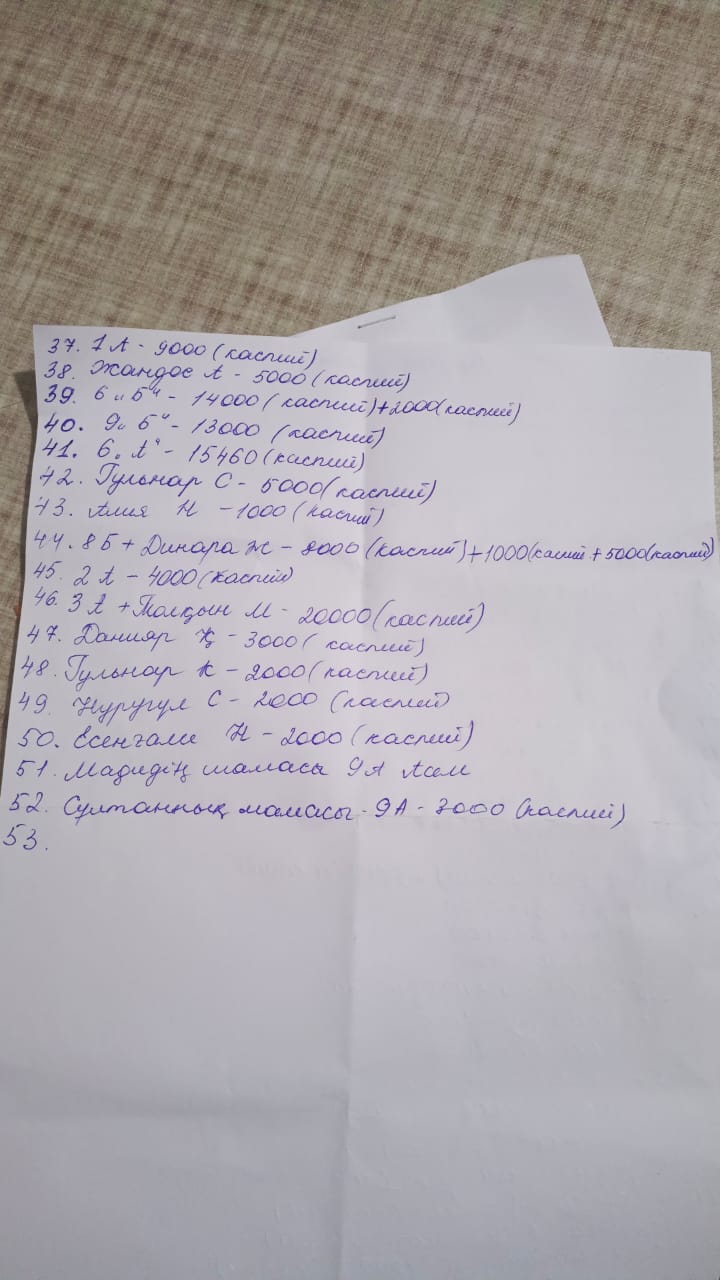 37. 1 А - 9000 (каспий)
38. Жандос А - 5000 (каспий)
39. 6 "Б" - 14000 (каспий)+2000(каспий)
40. 9 "Б" - 13000 (каспий)
41. 6 "А" - 15460 (каспий)
42. Гульнар С - 5000 (каспий)
43. Алия Н - 1000 (каспий)
44. 8 Б + Динара Ж - (каспий)+1000(каспий + 5000(каспий)
45. 2 А - 4000 (каспий)
46. 3 А + Толқын М - 20000 (каспий)
47. Данияр Қ - 3000 ( каспий)
48. Гульнар К - 2000 (каспий)
49. Нуругул С - 2000 (каспий)
50. Есенгали Н - 2000 (каспий)
51. Мадидің мамасы 9А Асем
52. Султанның мамасы - 9А - (каспий)
53.